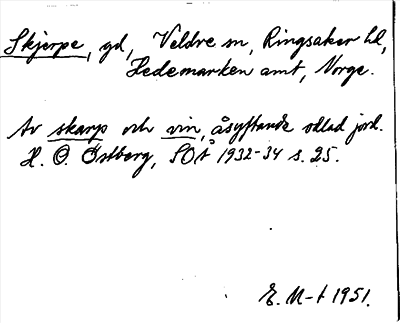 Skjerpe, gd, Veldre sn, Ringsaker hd,
Hedemarken amt, Norge.
Av skarp och vin, åsyftande odlad jord.
H. O. Østberg, SOÅ 1932-34 s. 25.
E. M-t 1951.